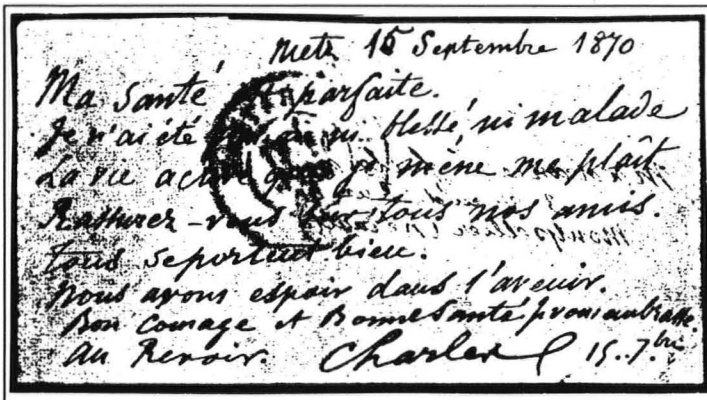 Metz 15 Septembre 1870
Ma Santé est parfaite.
Je n'ai été ni blessé, ni malade
La vie active que je mène me plaît
Rassurez-vous sur tous nos amis.
tous se portent bien.
Nous avons espoir dans l'avenir.
Bon Courage et Bonne Santé je vous embrasse.
Au Revoir. Charles 15.7.bre
Montpellier